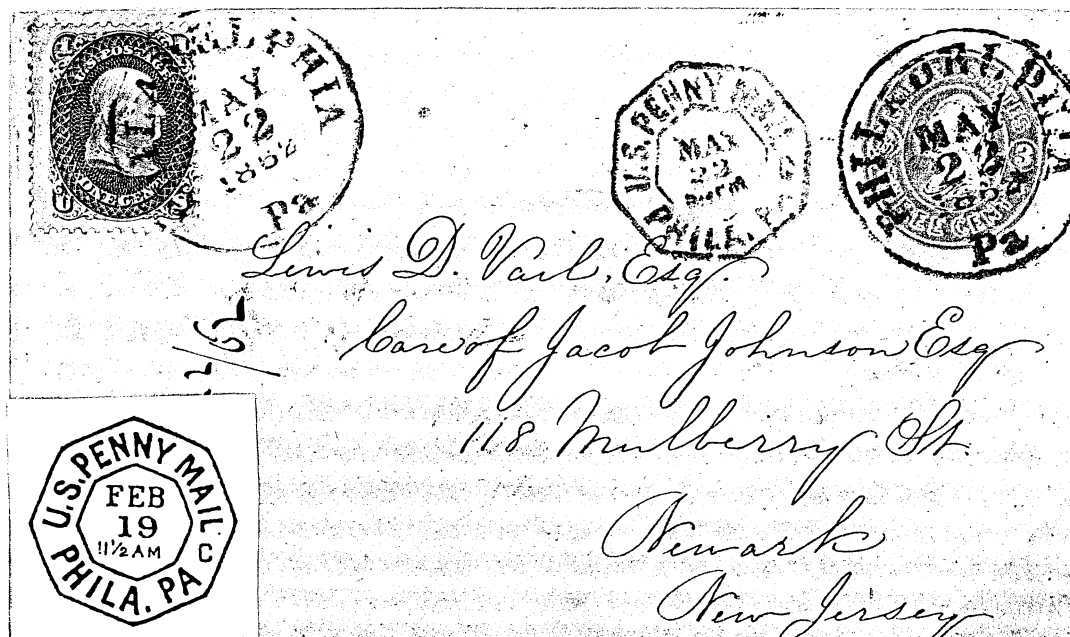 U.S. POSTAGE
ONE CENT
U S
MAY
22
1862
Pa
U.S. PENNY MAIL
MAY
22
PHILA. PA C
PHILADELPHIA
MAY
22
Pa
3
Lewis D. Vail, Esq.
Care of Jacob Johnson Esq
118 Mulberry St.
Newark
New Jersey
U.S. PENNY MAIL
FEB
19
11½ AM
C
PHILA. PA